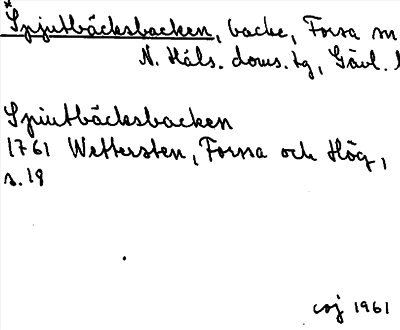 *Spjutbäcksbacken, backe, Forsa
N. Häls. doms. tg, Gävl.
Spiutbäcksbacken
1761 Wettersten, Forssa och Hög,
s. 19
1961